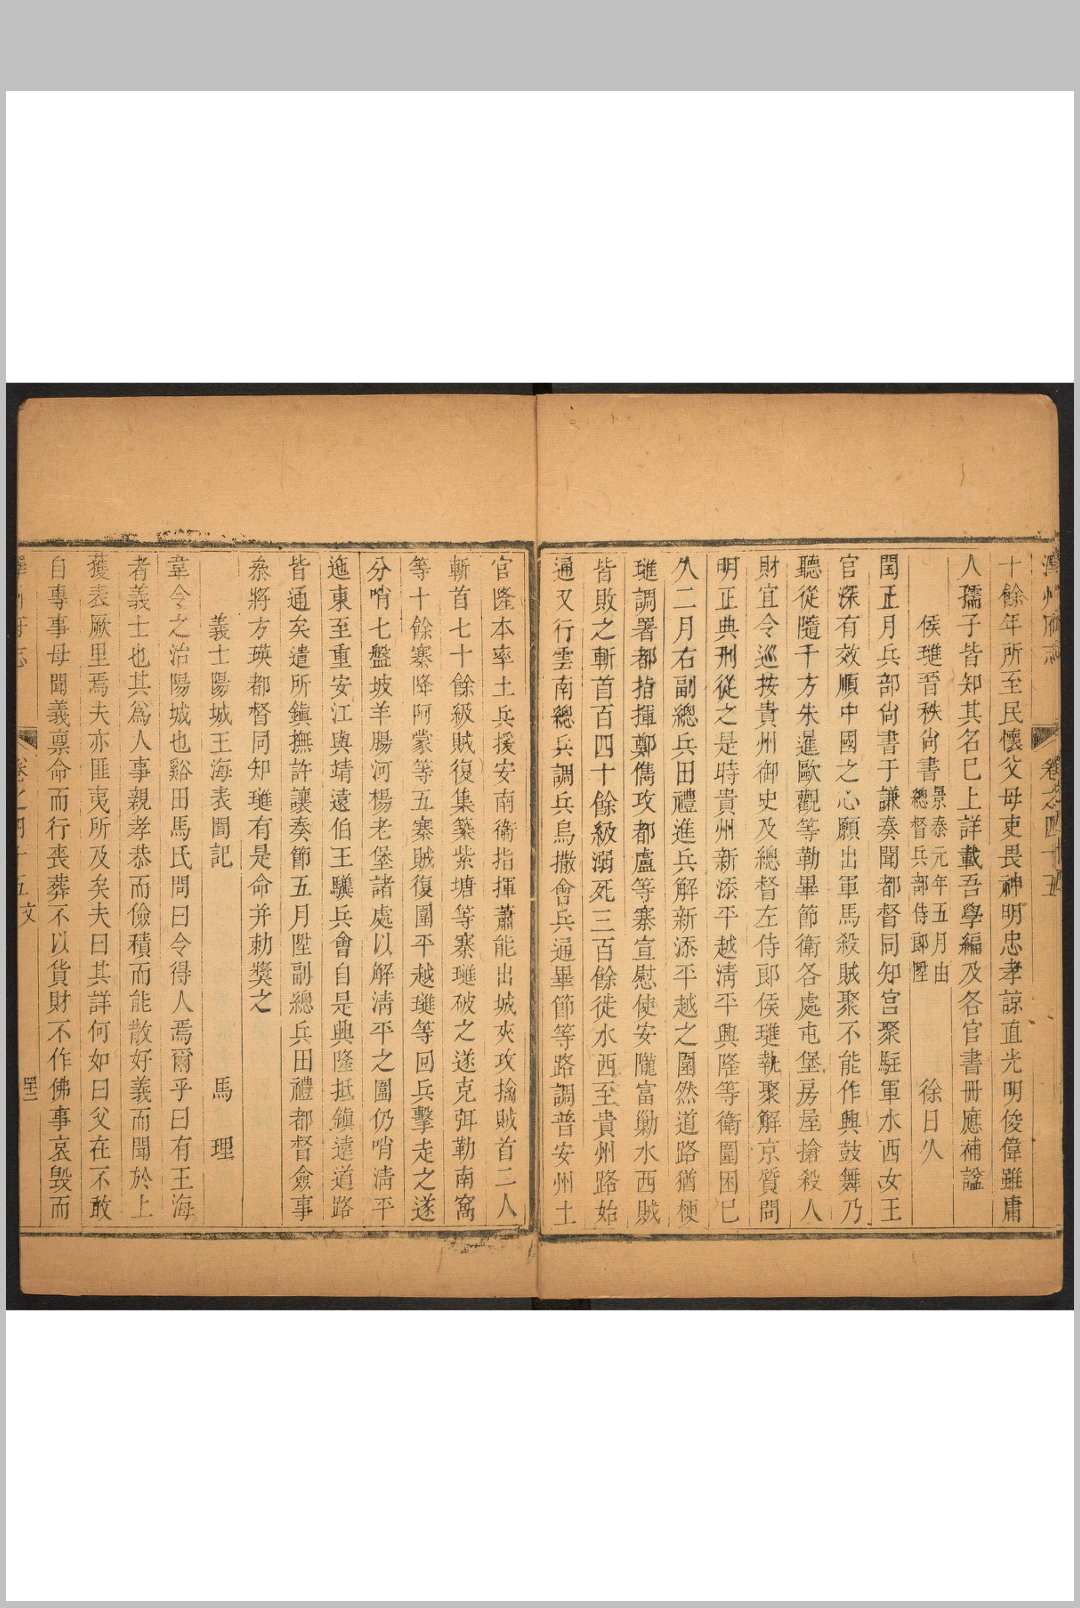 澤州府志 卷之四十五
十餘年所至民懷父母吏畏神明忠孝諒直光明俊偉雖庸
人孺子皆知其名巳上詳載吾學編及各官書冊應補諡
侯璡晉秩尙書 景泰元年五月由總督兵部侍郎陞 徐日久
閏正月兵部尙書于謙奏聞都督同知宫聚駐軍水西女王
官深有效順中國之心願出軍馬殺賊聚不能作興鼓舞乃
聽從隨千方朱暹歐觀等勒畢節衛各處屯堡房屋搶殺人
財宜令巡按貴州御史及總督左侍郎侯璡執聚解京質問
明正典刑從之是時貴州新添平越淸平興隆等衛圍困巳
久二月右副總兵田禮進兵解新添平越之圍然道路猶梗
璡調署都指揮鄭儁攻都盧等寨宣慰使安隴富勦水西賊
皆敗之斬首百四十餘級溺死三百餘徒水西至貴州路始
通又行雲南總兵調兵烏撒會兵通畢節等路調普安州土
官隆本率土兵援安南衛指揮蕭能出城夾攻擒賊首二人
斬首七十餘級賊復集纂紫塘等寨璡破之遂克弭勒南窩
等十餘寨降阿蒙等五寨賊復圍平越璡等回兵擊走之遂
分哨七盤坡羊腸河楊老堡諸處以解淸平之圍仍哨淸平
迤東至重安江與靖遠伯王驥兵會自是興隆抵鎭遠道路
皆通矣遣所鎭撫許讓奏節五月陞副總兵田禮都督僉事
叅將方瑛都督同知璡有是命并勅獎之
義士陽城王海表閭記 馬 理
韋令之治陽城也谿田馬氏問曰令得人焉爾乎曰有王海
者義士也其爲人事親孝恭而儉積而能散好義而聞於上
獲表厥里焉夫亦匪夷所及矣夫曰其詳何如曰父在不敢
自專事母聞義禀命而行喪葬不以貨財不作佛事哀毁而
澤州府志 卷之四十五 文